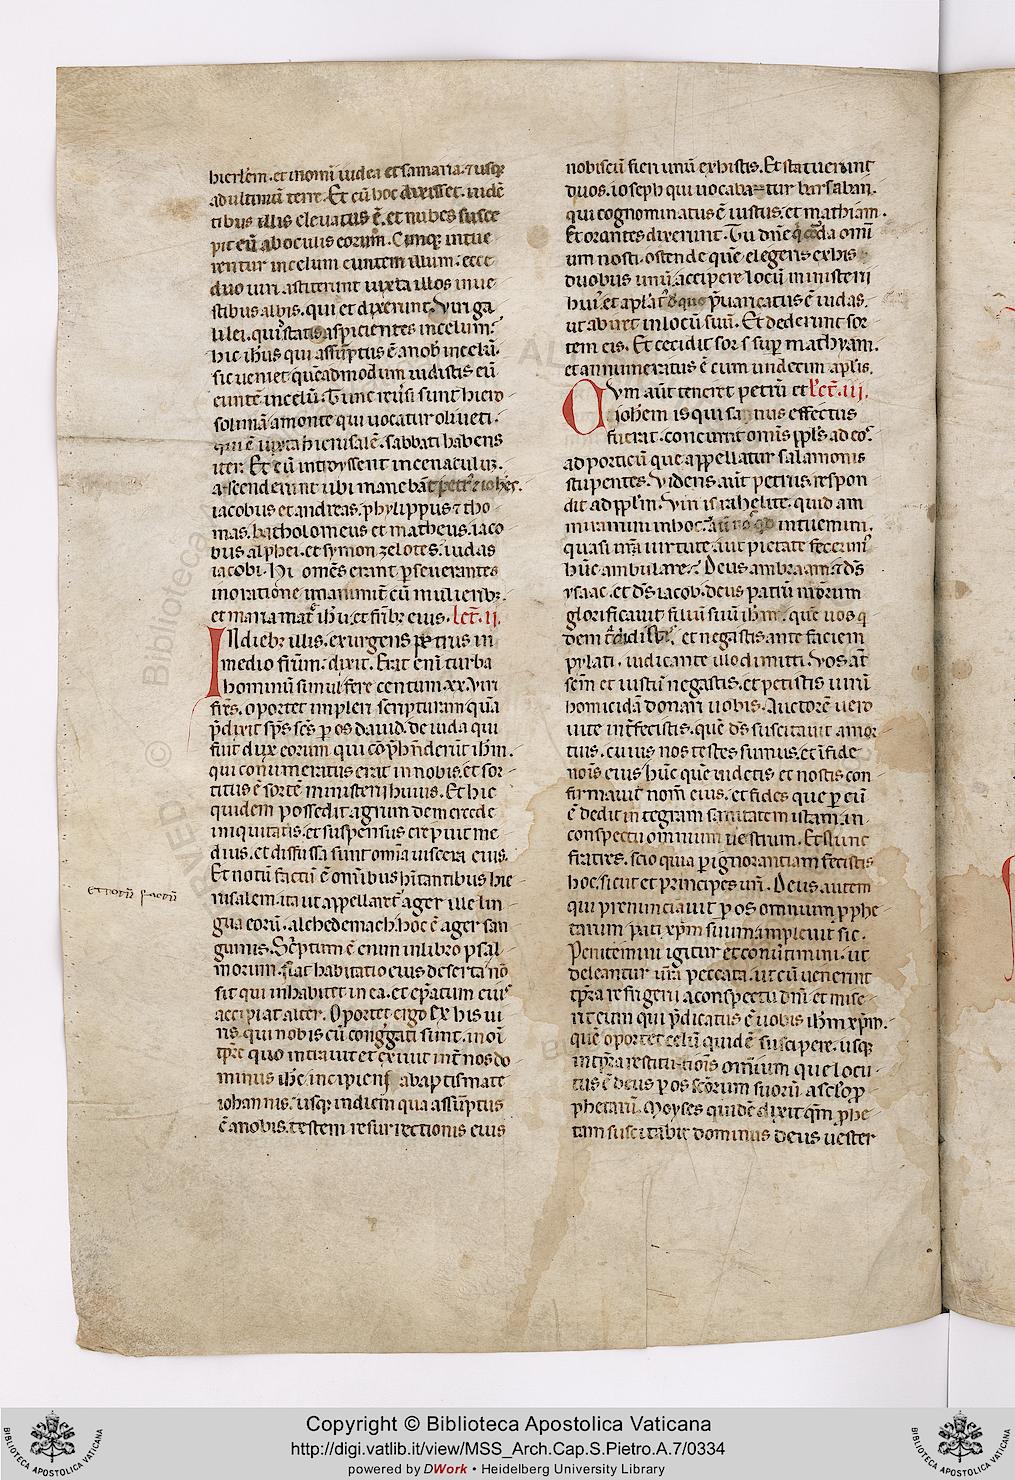 hierl̄em. et in om̄i iudea et samaria. ⁊ usq;
ad ultimū terre. Et cū hoc dixisset. uidē
tibus illis eleuatus ē. et nubes susce
pit eū ab oculis eorum. Cumq; intue
rentur in celum euntem illum: ecce
duo uiri astiterunt iuxta illos in ue
stibus albis. qui et dixerunt. Viri ga
lilei. qui statis aspicientes in celum:
hic ih̄us qui assūptus ē a nob̄ in celū.
sic ueniet quēadmodum uidistis eū
euntē in celū. Tunc reu̓si sunt hiero
solimā a monte qui uocatur oliueti.
qui ē iuxta hierusalē. sabbati habens
iter. Et cū introyssent in cenaculuꝫ.
ascenderunt ubi manebāt petr̓ ⁊ ioh̄es.
iacobus et andreas. phylippus ⁊ tho
mas. bartholomeus et matheus. iaco
bus alphei. et symon zelotes. iudas
iacobi. Hi om̄es erant p̱seuerantes
in oratione unanimit̓ cū mulierib;.
et maria mat̓ ih̄u. et fr̄ib; eius. lec̄t. ij.
In dieb; illis. exurgens petrus in
medio fr̄um: dixit. Erat eni̅ turba
hominū simul fere centum. xx. Viri
fr̄es. oportet impleri scripturam quā
p̄dixit sp̄s sc̄s p̱ os dauid. de iuda qui
fuit dux eorum qui cōp̄hnderūt ih̄m.
qui conumeratus erat in nobis. et sor
titus ē sortē ministerij huius. Et hic
quidem possedit agrum de mercede
iniquitatis. et suspensus crepuit me
dius. et diffussa sunt om̄ia uiscera eius.
Et notū factū ē om̄ibus hītantibus hie
rusalem. ita ut appellaret̓ ager ille lin
gua eorū. alchedemach. hoc ē ager san
guinis. Sc̓ptum ē enim in libro psal
morum. fiat habitatio eius deserta ⁊ nō
sit qui inhabitet in ea. et ep̄atum eius
accipiat alter. Oportet ergo ex his ui
ris. qui nobis cū cong̓gati sunt. in om̄i
tp̄re quo intrauit et exiuit int̓ nos do
minus ih̄c incipiens a baptismate
iohannis. usq; in diem qua assūptus
ē a nobis. testem resurrectionis eius
et notū factū
nobiscū fieri unū ex histis. Et statuerunt
duos. ioseph qui uocabatur barsaban.
qui cognominatus ē iustus. et mathiam.
Et orantes dixerunt. Tu dn̄e q̓ corda omi
um nosti. ostende quē elegeris ex his
duobus unū. accipere locū ministerii
hui̓ et ap̄lat̓ de quo p̄uaricatus ē iudas.
ut abiret in locū suū. Et dederunt sor
tem eis. Et cecidit sors sup̱ mathyam.
et annumeratus ē cum undecim ap̄lis.
Cvm aūt teneret petrū et lec̄t. iij.
ioh̄em is qui sanus effectus
fuerat. concurrit omīs pp̄ls ad eos.
ad porticū que appellatur salamonis
stupentes. Videns aūt petrus respon
dit ad pp̄lm. Viri israhelite. quid am
miramini in hoc: aut nos qd intuemini.
quasi nr̄a uirtute. aut pietate fecerim̓
hūc ambulare? Deus ambraam. ⁊ ds̄
ysaac. et ds̄ iacob. deus patrū nr̄orum
glorificauit filiū suū ih̄m. que uos q
dem tradidistis. et negastis ante faciem
pylati. iudicante illo dimitti. Vos aūt
sc̄m et iustū negastis. et petistis uirū
homicidā donari uobis. Auctorē uero
uite int̓fecistis. quē ds̄ suscitauit a mor
tuis. cuius nos testes sumus. et in fide
noīs eius hūc quē uidetis et nostis con
firmauit nom̄ eius. et fides que p̱ eū
ē dedit integram sanitatem istam. in
conspectu omnium uestrum. Et nunc
fratres. scio quia p̱ ignorantiam fecistis
hoc. sicut et principes ur̄i. Deus autem
qui prenunciauit p̱ os omnium p̱phe
tarum pati xp̄m suum. impleuit sic.
Penitemini igitur et conu̓timini. ut
deleantur ur̄a peccata. ut cū uenerint
tp̄ra refrigerij a conspectu dn̄i et mise
rit eum qui p̄dicatus ē uobis ih̄m xp̄m.
quē oportet celū quidē suscipere. usq;
in tp̄ra restitutionīs omīum que locu
tus ē deus p̱ os sc̄orum suorū. a sclo p̱
phetarū. Moyses quidē dixit qm̄ p̱phe
tam suscitabit dominus deus uester
Copyright © Biblioteca Apostolica Vaticana
http://digi.vatlib.it/view/MSS_Arch.Cap.S.Pietro.A.7/0334
powered by DWork • Heidelberg University Library
BIBLIOTECA APOSTOLICA VATICANA
BIBLIOTECA APOSTOLICA VATICANA